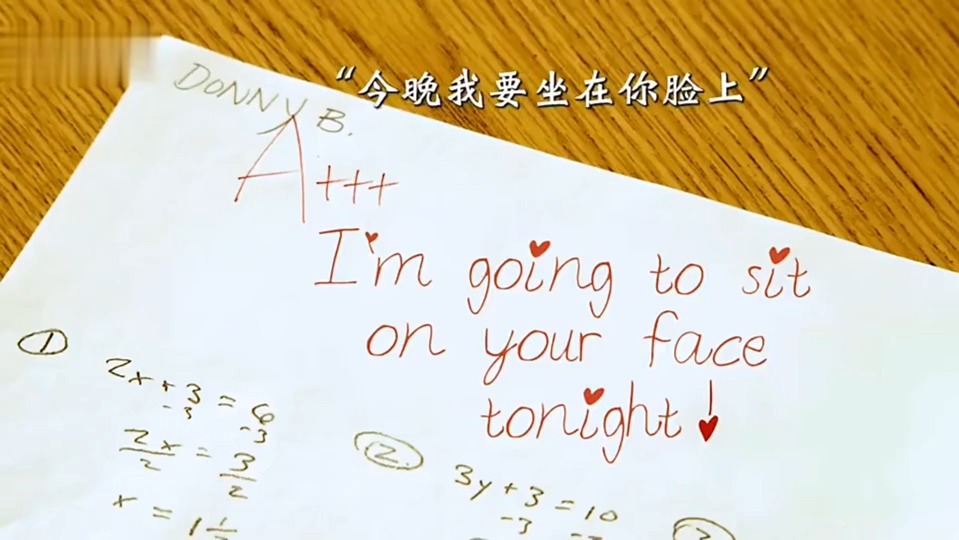 “今晚我要坐在你脸上”
DONNY B.
A+++
I'm going to sit
on your face
tonight!
1
2x+3 = 6
-3 -3
2x/2 = 3/2
x = 1 1/2
2.
3y+3 = 10
-3 -3